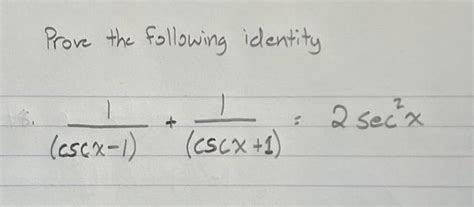 Prove the following identity
1/(cscx-1) + 1/(cscx+1) = 2sec²x